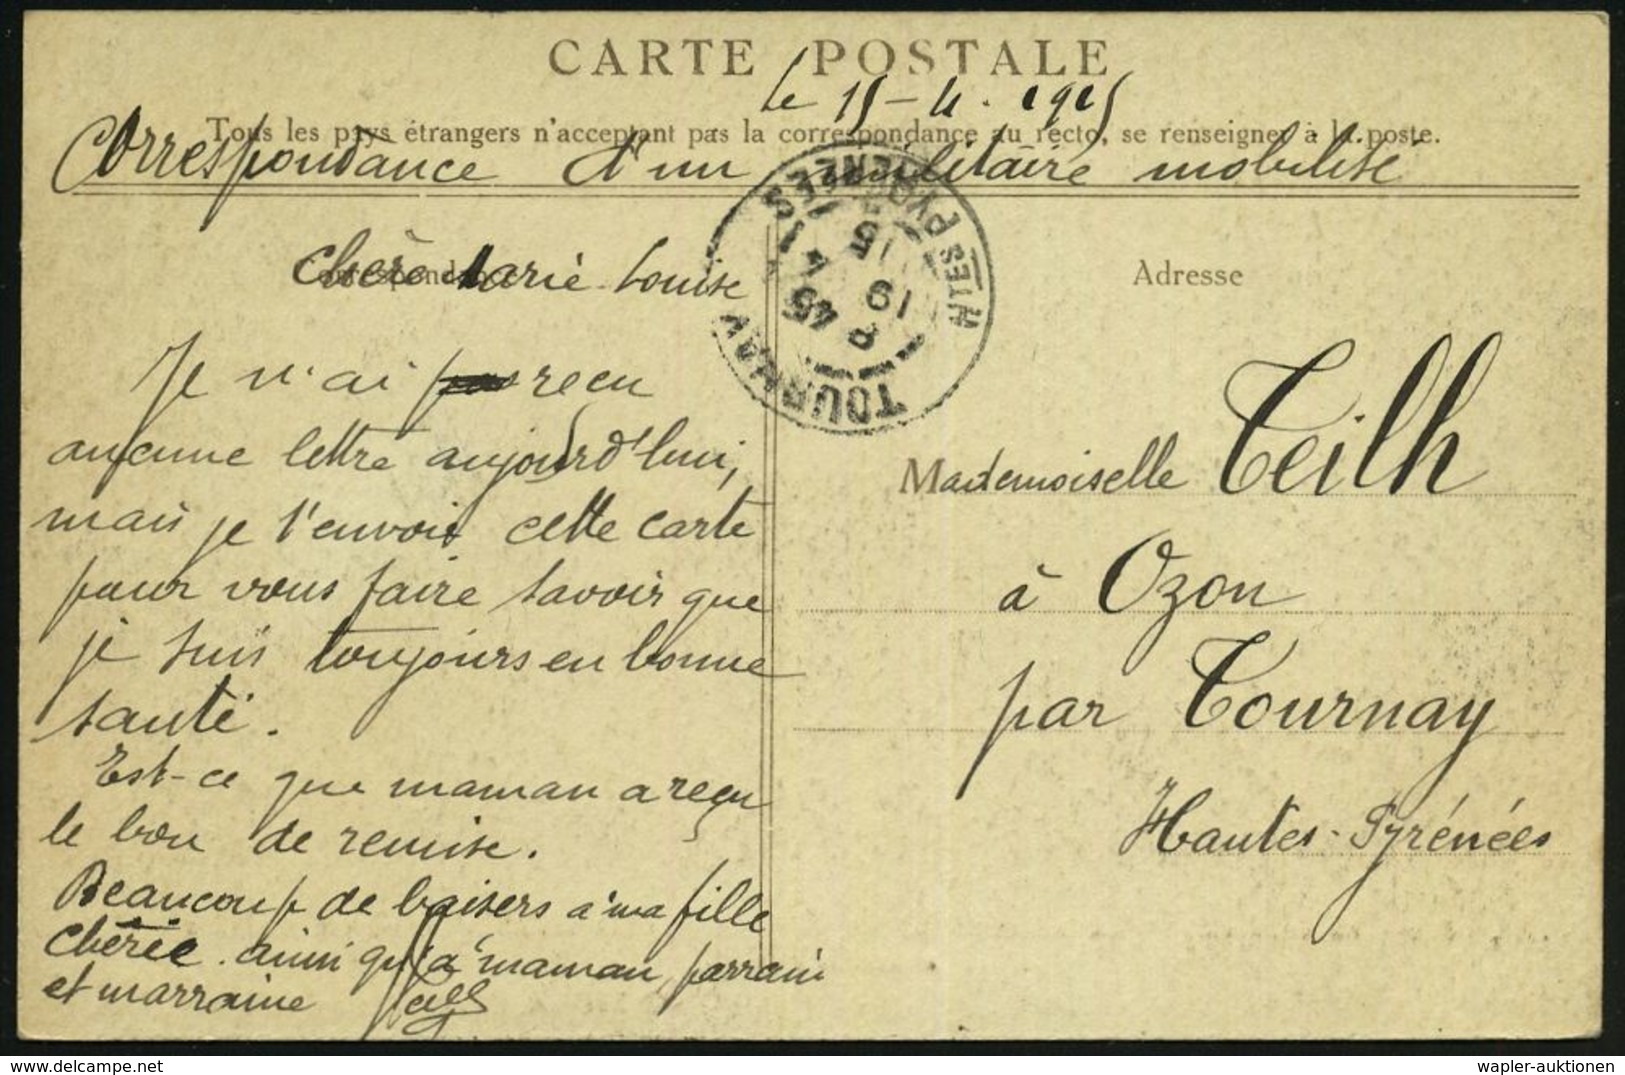 CARTE POSTALE
le 15-4-1915
Tous les pays étrangers n'acceptant pas la correspondance au recto, se renseigner à la poste.
Correspondance d'un militaire mobilisé
Chère Marie Louise
Adresse
Je n'ai reçu
aucune lettre aujourd'hui,
mais je t'envoie cette carte
pour vous faire savoir que
je suis toujours en bonne
santé.
Est-ce que maman a reçu
le bon de remise.
Beaucoup de baisers à ma fille
chérie ainsi qu'à maman, parrain
et marraine
Teilh
TOURNAY
HTES PYRÉNÉES
8 45
19 4
15
Mademoiselle Teilh
à Ozon
par Tournay
Hautes-Pyrénées
delcampe.net
wapler-auktionen